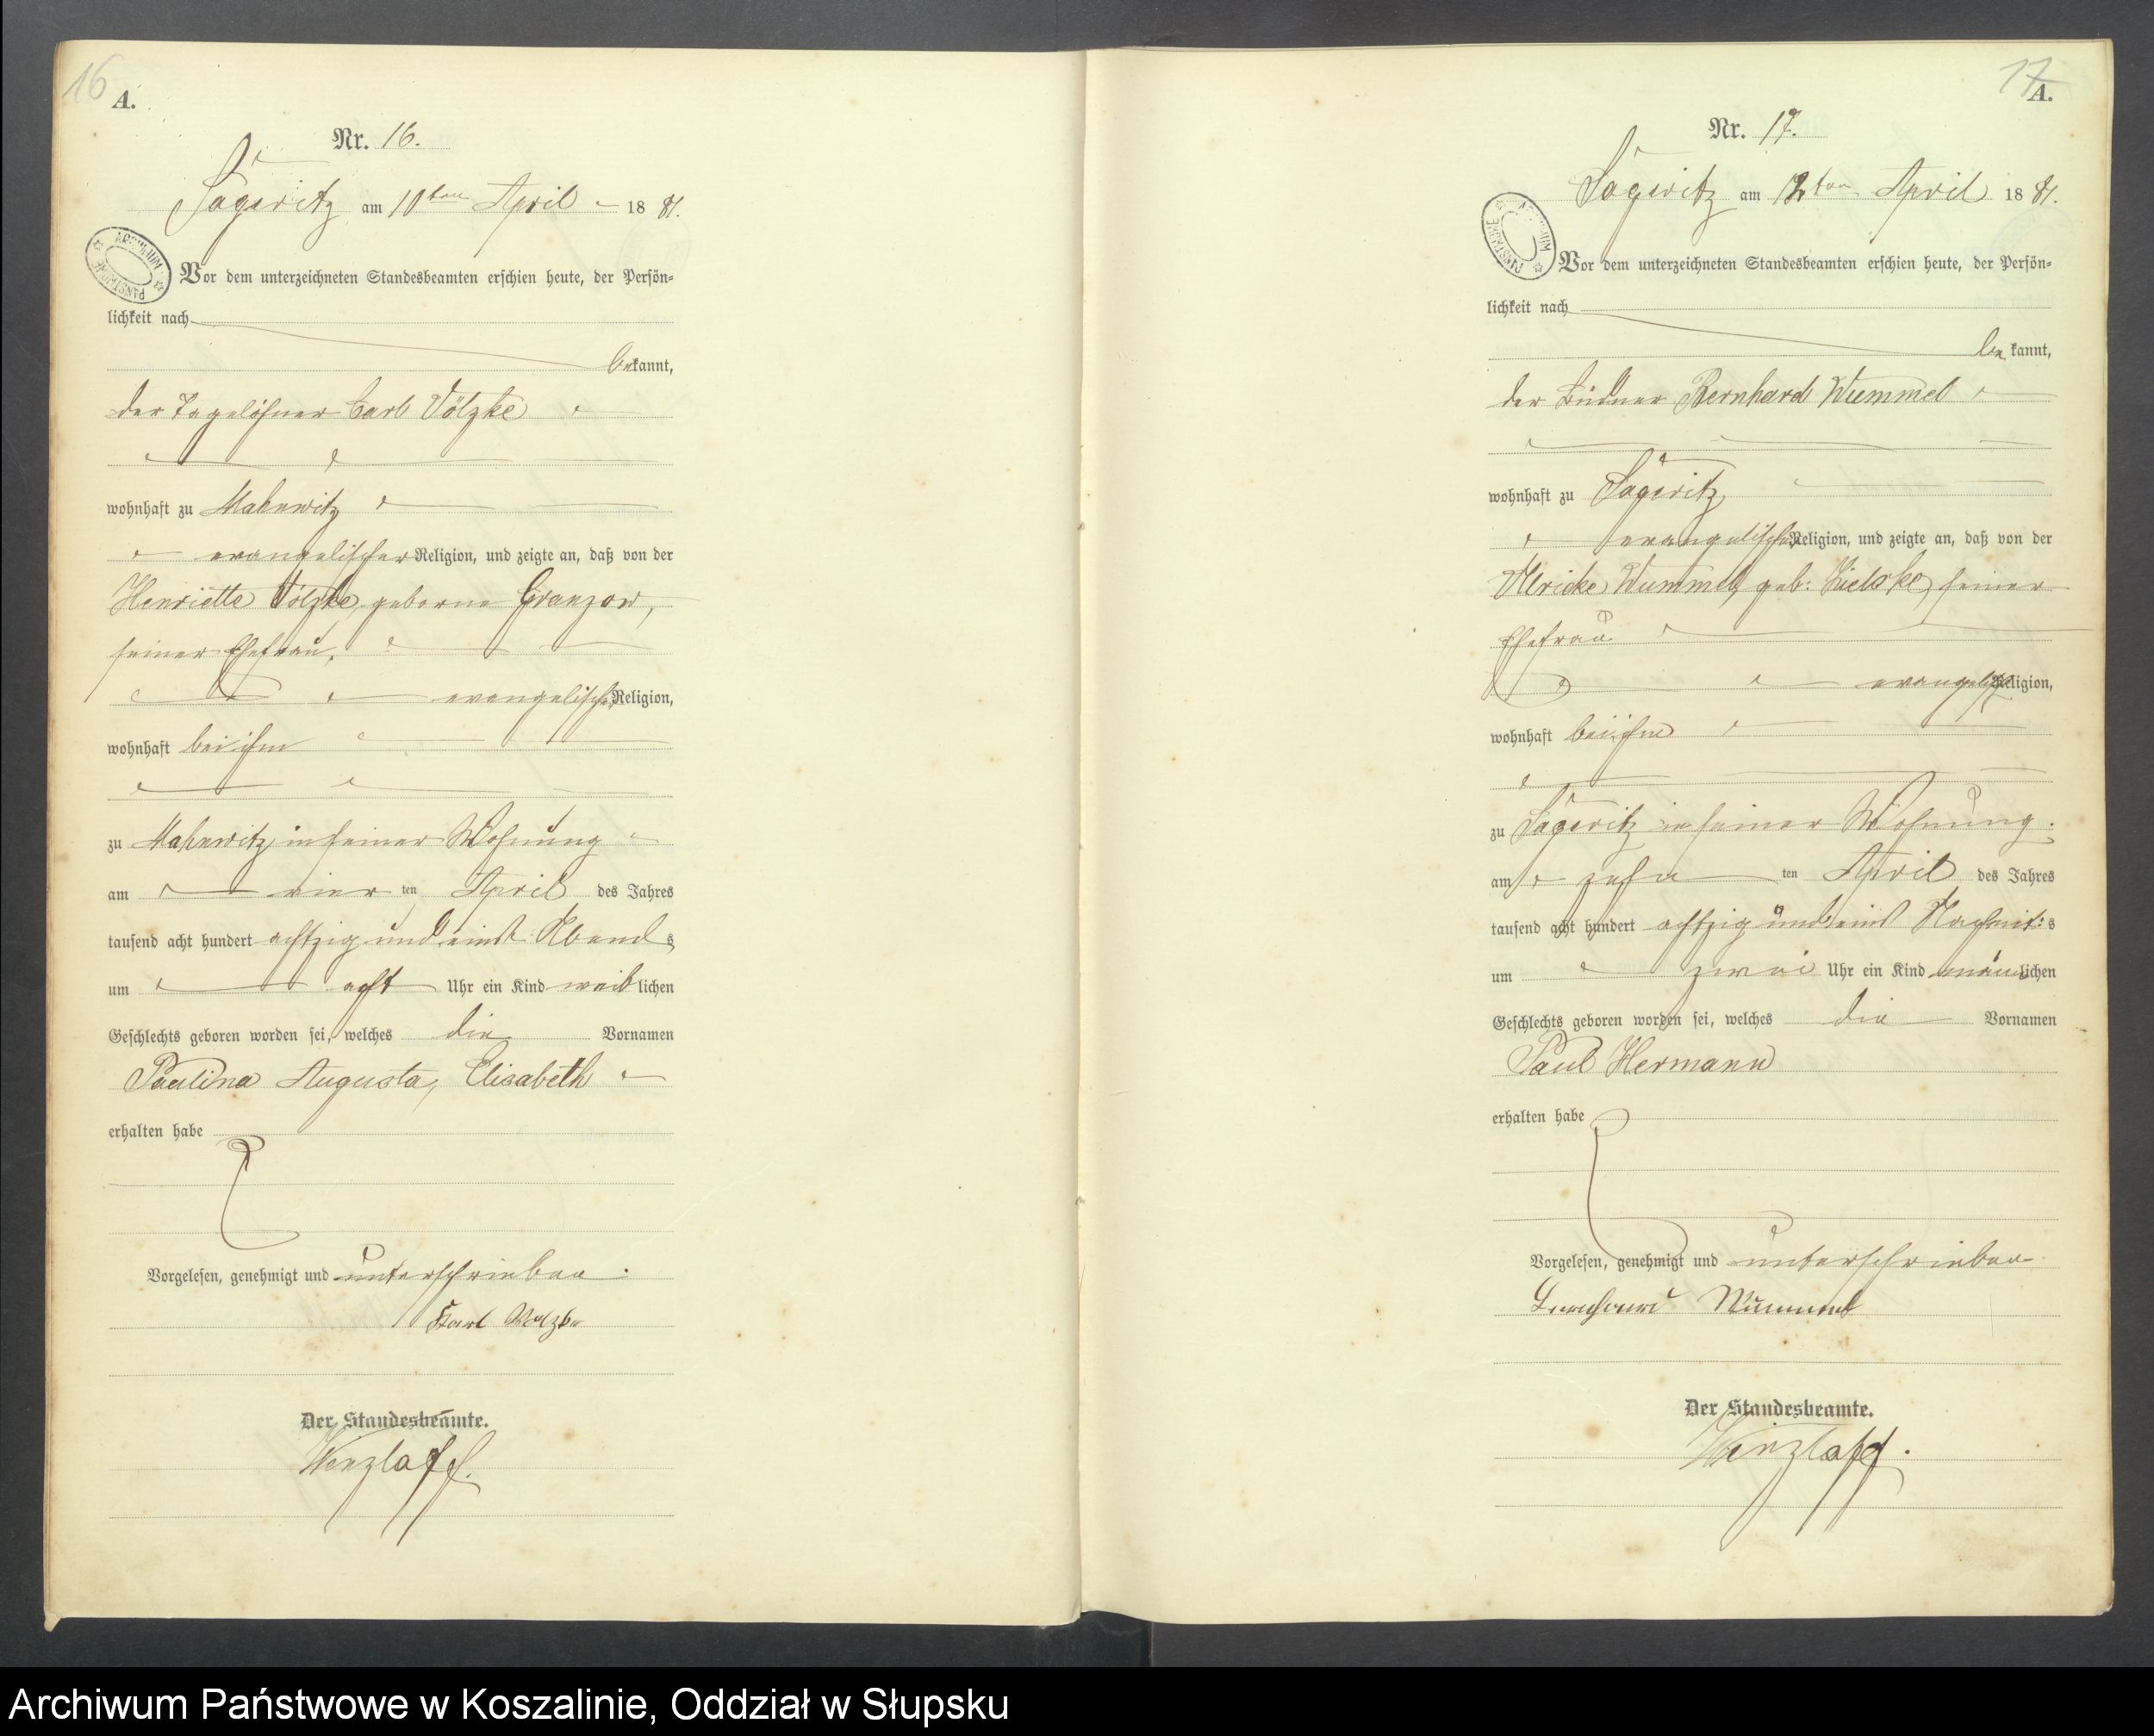 16
A.
Nr. 16.
Sageritz am 10ten April 1881.
ARCHIWUM PAŃSTWOWE
Vor dem unterzeichneten Standesbeamten erschien heute, der Persön-
lichkeit nach
bekannt,
der Tagelöhner Carl Völzke
wohnhaft zu Mahnwitz
evangelischer Religion, und zeigte an, daß von der
Henriette Völzke geborne Granzow,
seiner Ehefrau,
evangelischer Religion,
wohnhaft bei ihm
zu Mahnwitz in seiner Wohnung
am vier ten April des Jahres
tausend acht hundert achtzig und eins Abends
um acht Uhr ein Kind weiblichen
Geschlechts geboren worden sei, welches die Vornamen
Paulina Augusta, Elisabeth
erhalten habe
Vorgelesen, genehmigt und unterschrieben.
Karl
Der Standesbeamte.
Wenzlaff.
17
A.
Nr. 17.
Sageritz am 12ten April 1881.
ARCHIWUM PAŃSTWOWE
Vor dem unterzeichneten Standesbeamten erschien heute, der Persön-
lichkeit nach
bekannt,
der Büdner Bernhard Wummel
wohnhaft zu Sageritz
evangelischer Religion, und zeigte an, daß von der
Ulricke Wummel geb: seiner
Ehefrau
evangelischer Religion,
wohnhaft bei ihm
zu Sageritz in seiner Wohnung.
am zehn ten April des Jahres
tausend acht hundert achtzig und eins Nachmit:s
um zwei Uhr ein Kind männlichen
Geschlechts geboren worden sei, welches die Vornamen
Paul Hermann
erhalten habe
Vorgelesen, genehmigt und unterschrieben
Bernhard Wummel
Der Standesbeamte.
Wenzlaff.
Archiwum Państwowe w Koszalinie, Oddział w Słupsku